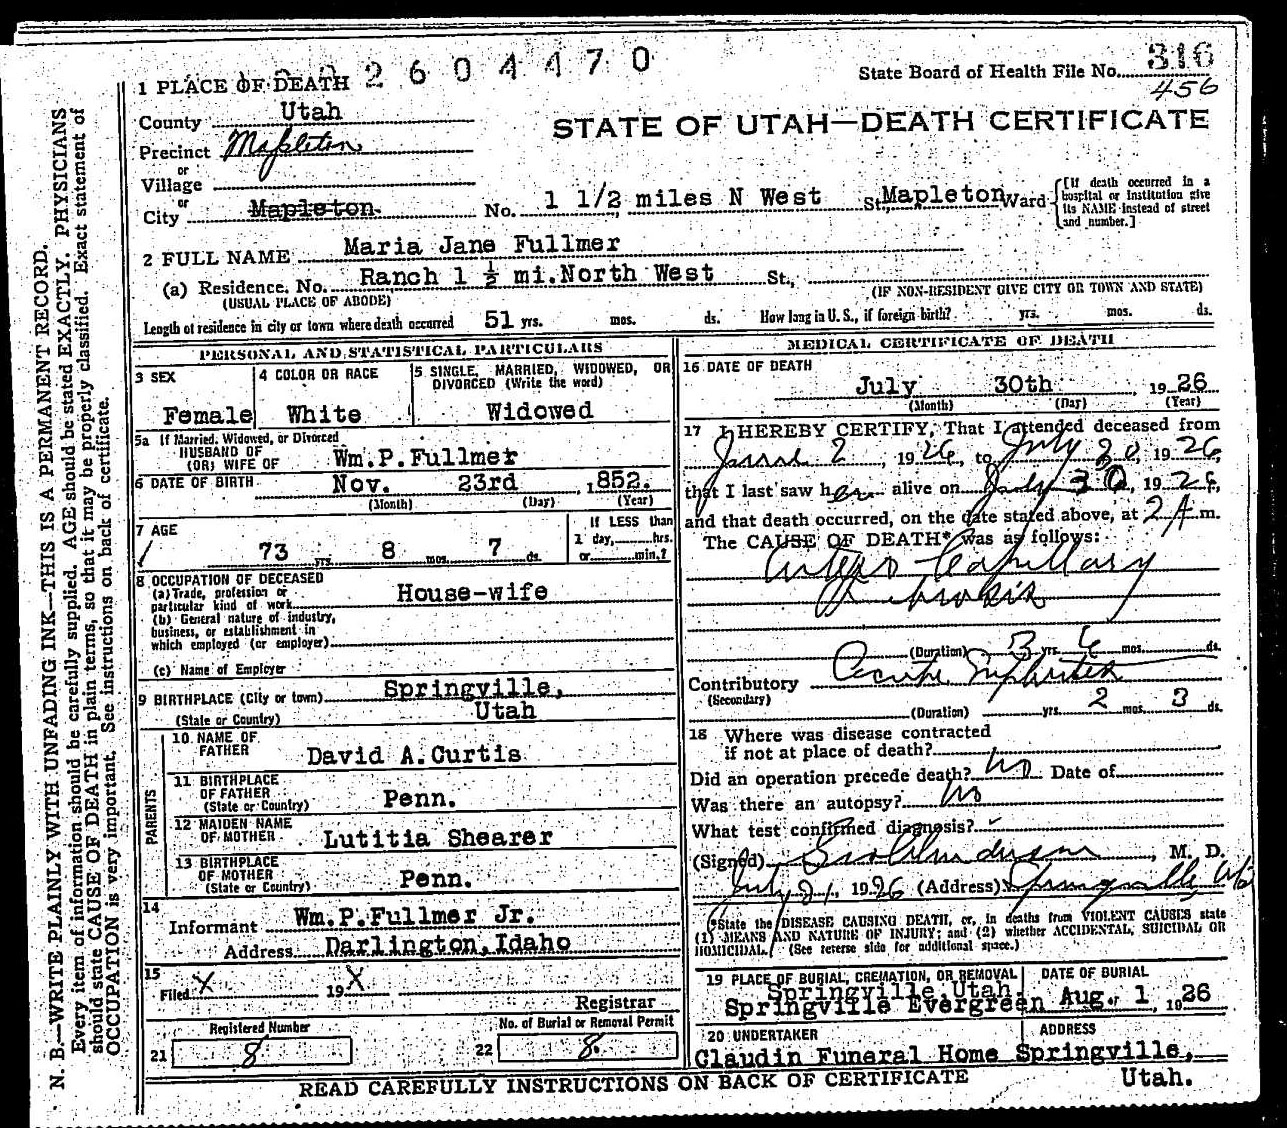 2604470
State Board of Health File No. 316
456
1 PLACE OF DEATH
County Utah
STATE OF UTAH—DEATH CERTIFICATE
Precinct Mapleton
or
Village
or
City Mapleton. No. 1 1/2 miles N West St, Mapleton Ward [If death occurred in a hospital or institution give its NAME instead of street and number.]
2 FULL NAME Maria Jane Fullmer
(a) Residence. No. Ranch 1 ½ mi.North West St.,
(USUAL PLACE OF ABODE) (IF NON-RESIDENT GIVE CITY OR TOWN AND STATE)
Length of residence in city or town where death occurred 51 yrs. mos. ds. How long in U. S., if foreign birth? yrs. mos. ds.
PERSONAL AND STATISTICAL PARTICULARS
3 SEX 4 COLOR OR RACE 5 SINGLE, MARRIED, WIDOWED, OR DIVORCED (Write the word)
Female White Widowed
5a If Married, Widowed, or Divorced
HUSBAND OF
(OR) WIFE OF Wm.P.Fullmer
6 DATE OF BIRTH Nov. 23rd, 1852.
(Month) (Day) (Year)
7 AGE If LESS than
73 yrs. 8 mos. 7 ds. 1 day,......hrs.
or......min.?
8 OCCUPATION OF DECEASED
(a) Trade, profession or
particular kind of work House-wife
(b) General nature of industry,
business, or establishment in
which employed (or employer)
(c) Name of Employer
9 BIRTHPLACE (City or town) Springville,
(State or Country) Utah
PARENTS
10 NAME OF
FATHER David A.Curtis
11 BIRTHPLACE
OF FATHER
(State or Country) Penn.
12 MAIDEN NAME
OF MOTHER Lutitia Shearer
13 BIRTHPLACE
OF MOTHER
(State or Country) Penn.
14
Informant Wm.P.Fullmer Jr.
Address Darlington,Idaho
15
Filed X 19X
Registrar
Registered Number No. of Burial or Removal Permit
21 8 22 8.
MEDICAL CERTIFICATE OF DEATH
16 DATE OF DEATH
July 30th 1926
(Month) (Day) (Year)
17 I HEREBY CERTIFY, That I attended deceased from
June 2, 1926, to July 30, 1926,
that I last saw her alive on July 30, 1926,
and that death occurred, on the date stated above, at 2 A m.
The CAUSE OF DEATH* was as follows:
Capillary
(Duration) 3 yrs. 6 mos. ds.
Contributory Acute Nephritis
(Secondary)
(Duration) yrs. 2 mos. 3 ds.
18 Where was disease contracted
if not at place of death?
Did an operation precede death? No Date of
Was there an autopsy? No
What test confirmed diagnosis?
(Signed) , M. D.
July 31, 1926 (Address) Springville
*State the DISEASE CAUSING DEATH, or, in deaths from VIOLENT CAUSES state
(1) MEANS AND NATURE OF INJURY; and (2) whether ACCIDENTAL, SUICIDAL OR
HOMICIDAL. (See reverse side for additional space.)
19 PLACE OF BURIAL, CREMATION, OR REMOVAL DATE OF BURIAL
Springville, Utah.
Springville Evergreen Aug. 1, 1926
20 UNDERTAKER ADDRESS
Claudin Funeral Home Springville,
Utah.
READ CAREFULLY INSTRUCTIONS ON BACK OF CERTIFICATE
N. B.—WRITE PLAINLY WITH UNFADING INK—THIS IS A PERMANENT RECORD.
Every item of information should be carefully supplied. AGE should be stated EXACTLY. PHYSICIANS
should state CAUSE OF DEATH in plain terms, so that it may be properly classified. Exact statement of
OCCUPATION is very important. See instructions on back of certificate.